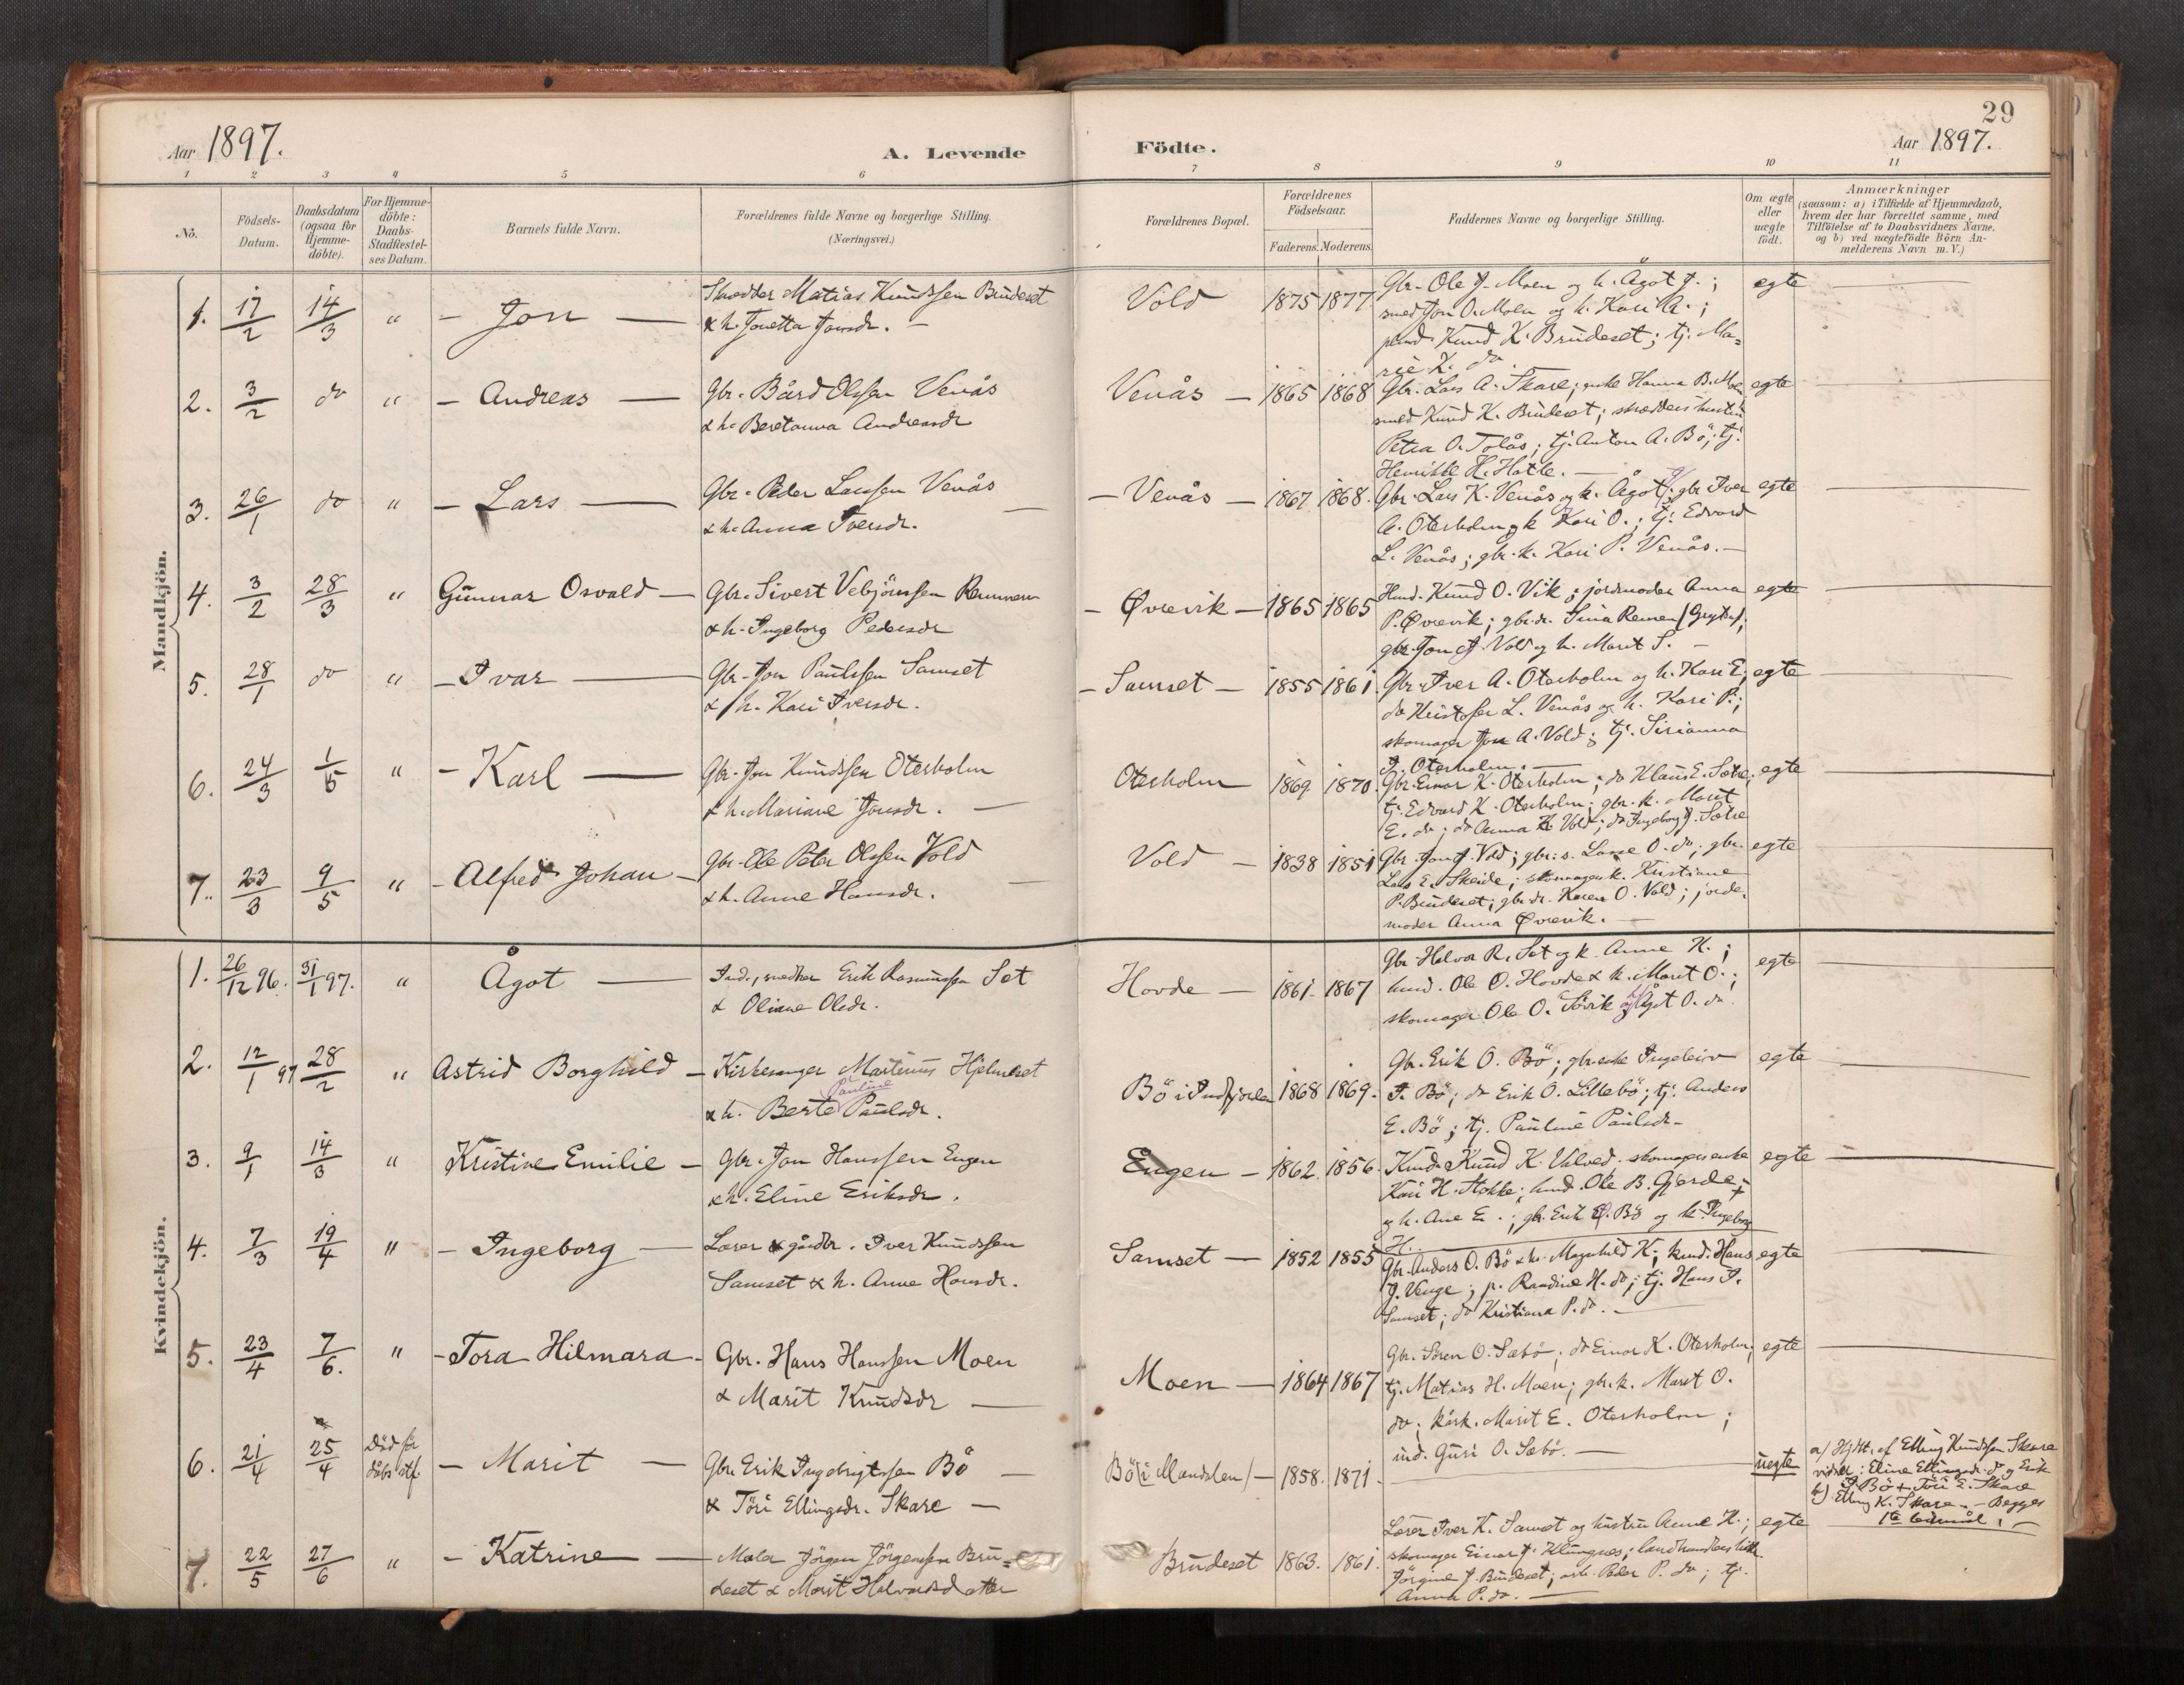 29
Aar 1897.
A. Levende Födte.
Aar 1897.
1 2 3 4 5 6 7 8 9 10 11
No.
Födsels-Datum.
Daabsdatum (ogsaa for Hjemmedöbte).
For Hjemmedöbte: Daabs-Stadfæstelses Datum.
Barnets fulde Navn.
Forældrenes fulde Navne og borgerlige Stilling.
(Næringsvei.)
Forældrenes Bopæl.
Forældrenes Födselsaar.
Faderens. Moderens.
Faddernes Navne og borgerlige Stilling.
Om ægte eller uægte födt.
Anmærkninger
(saasom: a) i Tilfælde af Hjemmedaab, hvem der har forrettet samme, med Tilföielse af to Daabsvidners Navne, og b) ved uægtefödte Börn Anmelderens Navn m. V.)
Mandkjön.
1. 17/2 14/3 " - Jon - Skrædder Matias Knudssen Brudeset
& h. Jonetta Jonsdr. -
Vold 1875 1877 Gbr. Ole J. Moen og h. Ågot J.;
smed Jon O. Moen og h. Kari A.;
Knud K. Brudeset; tj. Ma=
rie K. do
egte
2. 3/2 do " - Andreas - Gbr. Bård Olssen Venås
& h. Beretanna Andreasdr
Venås - 1865 1868 Gbr. Lars A. Skare; enke Hanna B. Moen
smed Knud K. Brudeset; skrædders hustru
Petra O. Tolås; tj. Anton A. Bö; tj.
Henrikke K. Hatle. -
egte
3. 26/1 do " - Lars - Gbr. Peder Larssen Venås
& h. Anna Iversdr. -
- Venås - 1867 1868. Gbr. Lars K. Venås og k. Ågot; gbr Iver
A. Oterholm og k Kari O.; tj. Edvard
L. Venås; gbr. k. Kari P. Venås. -
egte
4. 3/2 28/3 " Gunnar Osvald - Gbr. Sivert Vebjörnssen Remmem
& h. Ingeborg Pedersdr
- Øvrevik - 1865 1865 Hmd. Knud O. Vik; jordmoder Anna
P. Øvrevik; gbr. dr. Sina Remem (Grytten);
gbr. Jon J. Vold og h. Marit S. -
egte
5. 28/1 do " - Ivar - Gbr. Jon Paulssen Samset
& h. Kari Iversdr.
- Samset - 1855 1861. Gbr. Iver A. Oterholm og h. Kari E;
do Kristoffer L. Venås og h. Kari P.;
skomager Jon A. Vold; tj. Sirianna
J. Oterholm. -
egte
6. 24/3 1/5 " - Karl - Gbr. Jon Knudssen Oterholm
& h. Mariane Jonsdr. -
Oterholm 1869 1870. Gbr. Einar K. Oterholm; do Klaus E. Sætre;
tj. Edvard K. Oterholm; gbr. k. Marit
E. do; do Anna K. Vold; do Ingeborg J. Sætre
egte
7. 23/3 9/5 " - Alfred Johan - Gbr. Ole Peter Olssen Vold
& h. Anne Hansdr. -
Vold - 1838 1851 Gbr. Jon J. Vold; gbr. s. Lasse O. do; gbr.
Lars E. Skeide; skomager k. Kristiane
P. Brudeset; gbr. dr. Karen O. Vold; jorde.
moder Anna Øvrevik. -
egte
Kvindekjön.
1. 26/12 96. 31/1 97. " Ågot - Ind., snedker Erik Rasmussen Set
& Oliane Olsdr.
Hovde - 1861. 1867 Gbr Halvor R. Set og k. Anne K.;
hmd. Ole O. Hovde & k. Marit O.;
skomager Ole O. Sövik og Ågot O. do.
egte
2. 12/1 97 28/2 " Astrid Borghild - Kirkesanger Martinus Hjelmeset
Pauline
& h. Berte Paulsdr.
Bö i Indfjorden 1868 1869. Gbr. Erik O. Bö; gbr. enke Ingeleiv
I. Bö; do Erik O. Lillebö; tj. Anders
E. Bö; tj. Pauline Paulsdr -
egte
3. 9/1 14/3 " Kristine Emilie - Gbr. Jon Hanssen Engen
& h. Eline Eriksdr.
Engen - 1862. 1856. Knud K. Valved. skomagers enke
Kari H. Stokke; hmd. Ole B. Gjerde
og h. Ane E.; gbr. Erik O. Bö og k. Ingeborg
H. -
egte
4. 7/3 19/4 " - Ingeborg - Lærer & gårdbr. Iver Knudssen
Samset & h. Anne Hansdr.
Samset - 1852 1855 Gbr. Anders O. Bö & h. Magnhild K; hmd. Hans
J. Venge; p. Raadine H. do; tj. Hans I.
Samset; do Kristiana P. do. -
egte
5. 23/4 7/6. " - Tora Hilmara - Gbr. Hans Hanssen Moen
& Marit Knudsdr -
Moen - 1864 1867 Gbr. Sören O. Sæbö; do Einar K. Oterholm;
tj. Matias H. Moen; gbr. k. Marit O.
do; kårk. Marit E. Oterholm;
ind. Guri O. Sæbö. -
egte
6. 21/4 25/4 Död för dåbs stf. - Marit - Gbr. Erik Ingebrigtssen Bö -
& Töri Ellingsdr. Skare -
Bö (i Mandalen) - 1858. 1871. -
uegte
a) Hjdt. af Elling Knudssen Skare
vidner: Eline Ellingsdr. do og Erik
I. Bö & Töri E. Skare
b) Elling K. Skare. - Begges
1te leiermål. -
7. 22/5 27/6 " - Katrine - Maler Jörgen Jörgenssen Bru=
deset & Marit Halvardsdatter
Brudeset 1863. 1861. Lærer Iver K. Samset og hustru Anne H.;
skomager Einar J. Klungnes; landhandlers
Jörgine J. Brudeset; arb. Peder P. do; tj.
Anna P. do. -
egte